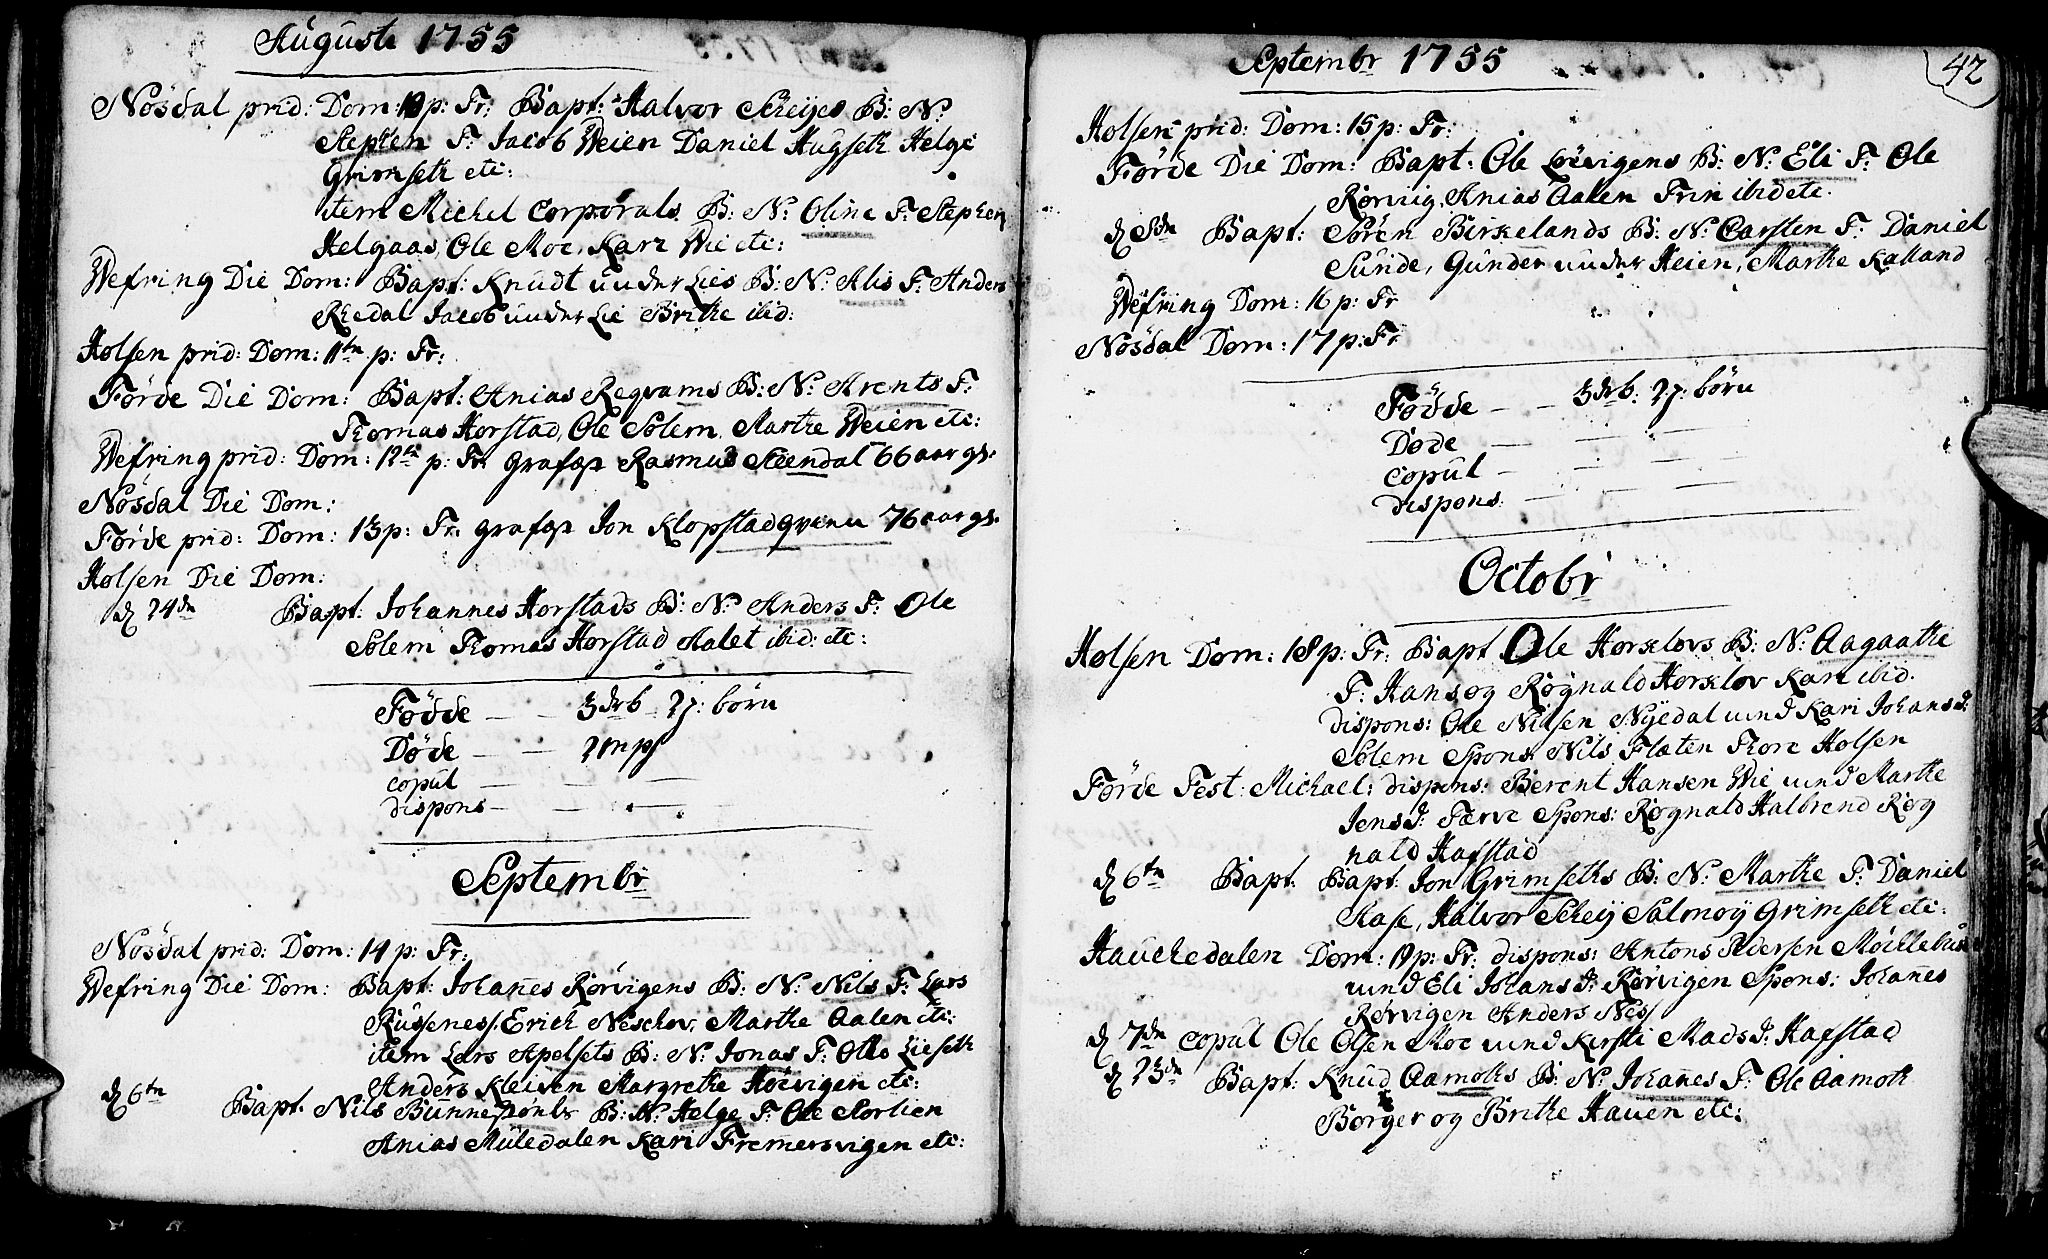 Auguste 1755
Nösdal prid: Dom: 10 p: Tr: Bapt: Halvor Scheyes B: N:
Stephen F: Jacob Weien Daniel Hugseth Helge
Grimseth etc:
item Michel Corporals B: N: Oline F: Stephen
Helgaas, Ole Moe, Kari Wie etc:
Wefring Die Dom: Bapt: Knudt under Lies B: N: Alis F: Anders
Rhedal Jacob under Lie Brithe ibid:
Holsen prid: Dom: 11tn p: Tr:
Förde Die Dom: Bapt: Anias Reqvams B: N: Arents F:
Thomas Horstad, Ole Solem, Marthe Weien etc:
Wefring prid: Dom: 12te p: Tr: Grafæst Rasmus Steendal 66 aar gl.
Nösdal Die Dom:
Förde prid: Dom: 13 p: Tr: grafæst Jon Klopstad qvenu 76 aar gl.
Holsen Die Dom:
d 24dn Bapt: Johannes Horstads B: N: Anders F: Ole
Solem Thomas Horstad Malet ibid: etc:
Födde — — 3drb 2p: börn
Döde — — 2mps
copul — — —
dispons — — —
Septembr
Nösdal prid: Dom: 14 p: Tr:
Wefring Die Dom: Bapt: Johañes Rörvigens B: N: Nils F: Lars
Russenes, Erich Neschov, Marthe Aalen etc:
item Lars Apelsets B: N: Jonas F: Otto Lieseth
Anders Kleiven Margrethe Höevigen etc:
d 6tn Bapt. Nils B: N: Helge F: Ole Storlien
Anias Muledalen Kari Fremersvigen etc:
Septembr 1755
42
Holsen prid: Dom: 15 p: Tr:
Förde Die Dom: Bapt: Ole Löevigens B: N: Eli F: Ole
Rörviig, Anias Aalen Trin ibid etc:
d 8dn Bapt: Sören Birkelands B: N: Carsten F: Daniel
Sunde, Gunder under Heien, Marthe Kalland
Wefring Dom: 16 p: Tr
Nösdal Dom: 17 p: Tr
Födde — — 3drb: 2p: börn
Döde — — —
copul — — —
dispons — — —
Octobr
Holsen Dom: 18 p: Tr: Bapt Ole Horsclovs B: N: Aagaathe
F: Hans og Rögnald Horsclov Kari ibid.
dispons: Ole Nilsen Nÿedal und Kari Johans D:
Solem Spons: Nils Flaten Thore Holsen
Förde Fest: Michael: dispons: Berent Hansen Wie und Marthe
Jens D: Færve Spons: Rögnald Halbrend Rög
nald Hafstad
d 6tn Bapt. Bapt: Jon Grimseths B: N: Marthe F: Daniel
Stase, Halvor Scheÿ Salmoÿ Grimseth etc:
Hauchedalen Dom: 19 p: Tr: dispons: Antons Pedersen Möchlebust
und Eli Johans D: Rörvigen Spons: Johañes
Rörvigen Anders Nes
d 7dn copul Ole Olsen Moe und Kirsti Mads D: Hafstad
d 23dn Bapt: Knud Aamoths B: N: Johañes F: Ole Aamoth
Börger og Brithe Hauen etc: